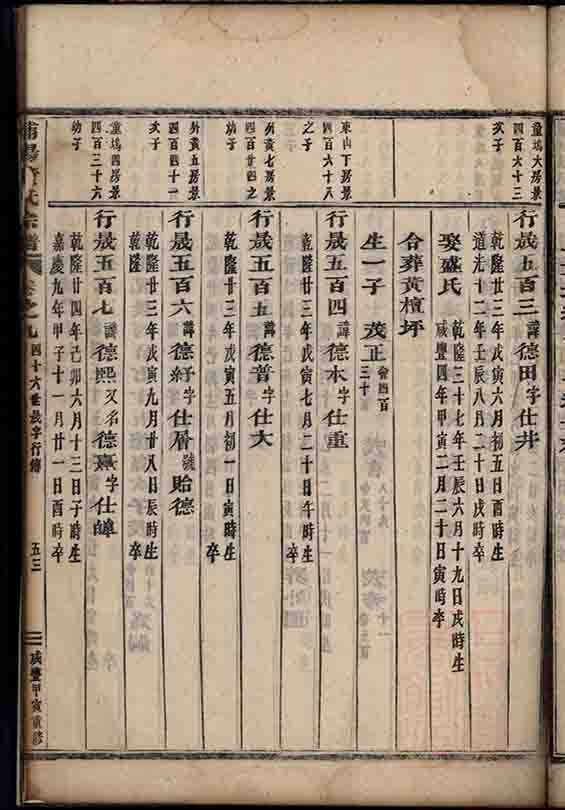 童塢大房景
四百六十三
次子
行晟五百三 諱德田字仕井
乾隆廿三年戊寅六月初五日酉時生
道光十二年壬辰八月二十日戌時卒
娶盛氏
乾隆三十七年壬辰六月十九日戌時生
咸豐四年甲寅二月二十日寅時卒
合葬黃檀坪
生一子 茂正 會四百三十
東山下房景
四百六十八
之子
行晟五百四 諱德本字仕重
乾隆廿三年戊寅七月二十日午時生
卒
外黃七房景
四百廿四之
幼子
行晟五百五 諱德普字仕大
乾隆廿三年戊寅五月初一日 時生
卒
外黃五房景
四百四十一
次子
行晟五百六 諱德紓字仕曆號貽德
乾隆廿三年戊寅九月廿八日辰時生
乾隆 卒
童塢四房景
四百三十六
幼子
行晟五百七 諱德熙又名德燾字仕皡
乾隆廿四年己卯六月十三日子時生
嘉慶九年甲子十一月廿一日酉時卒
氏宗譜 卷之九 四十六世晟字行傳 五三 咸豐甲寅重修